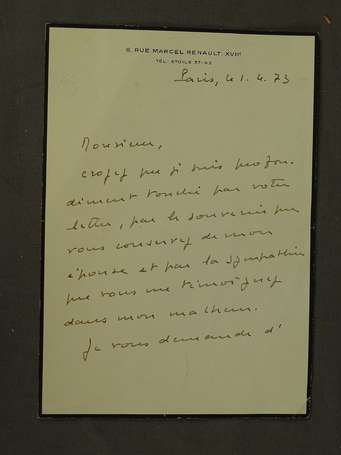 8, RUE MARCEL RENAULT, XVIIᵉ
TÉL. ETOILE 37-43
Paris, le 1. 4. 73
Monsieur,
croyez que je suis profon-
dément touché par votre
lettre, par le souvenir que
vous conservez de mon
épouse et par la sympathie
que vous me témoignez
dans mon malheur.
Je vous demande d'